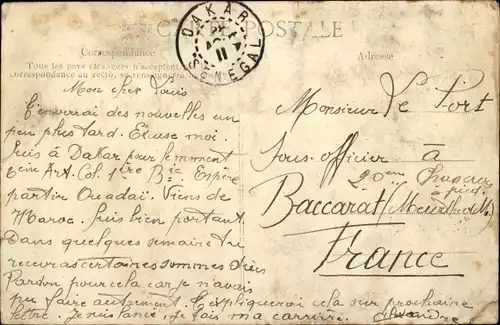 CARTE POSTALE
DAKAR
SÉNÉGAL
11
Correspondance
Tous les pays étrangers n'acceptent
correspondance au recto, se renseigner
Adresse
Mon cher Louis
T'enverrai des nouvelles un
peu plus tard. Excuse moi.
Suis à Dakar pour le moment
6eme Art. Col. 1ère Bie. Espère
partir Ouadaï. Viens de
Maroc. Suis bien portant.
Dans quelques semaine tu
recevras certaines sommes
Pardon pour cela car je n'avais
pu faire autrement. T'expliquerai cela sur prochaine
lettre. Je suis lancé, je fais ma carrière.
Alexandre
Monsieur Le Port
Sous-officier à
20eme Chasseur
à pied
Baccarat (Meurthe & M.)
France